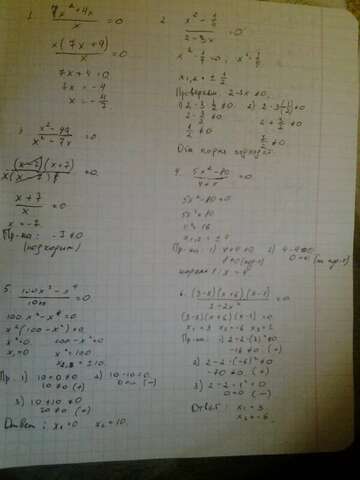 1. 7x²+4x / x = 0
x(7x+4) / x = 0
7x+4=0
7x = -4
x = -4/7
2. x² - 1/4 / 2-3x = 0
x² - 1/4 = 0, x² = 1/4
x₁,₂ = ± 1/2
Проверки: 2-3x ≠ 0
1) 2-3·1/2 ≠ 0 2) 2-3(-1/2) ≠ 0
2 - 3/2 ≠ 0 2 + 3/2 ≠ 0
1/2 ≠ 0 7/2 ≠ 0
3. x²-49 / x²-7x = 0
(x-7)(x+7) / x(x-7) = 0
x+7 / x = 0
x = -7
Пр-ка: -7 ≠ 0
(подходит)
4. 5x²-80 / 4+x = 0
5x²-80=0
5x²=80
x²=16
x₁,₂ = ±4
Пр-ка: 1) 4+4 ≠ 0 2) 4-4 ≠ 0
x = 4
5. 100x²-x⁴ / 10+x = 0
100x²-x⁴=0
x²(100-x²)=0
x²=0 100-x²=0
x₁=0 x²=100
x₂,₃ = ± 10
Пр. 1) 10+0 ≠ 0 2) 10-10=0
10 ≠ 0 (+) 0=0 (-)
3) 10+10 ≠ 0
20 ≠ 0 (+)
Ответ: x₁=0 x₂=10.
6. (3-x)(x+6)(x-1) / 2-2x² = 0
(3-x)(x+6)(x-1)=0
x₁=3 x₂=-6 x₃=1
Пр-ка: 1) 2-2·(3)² ≠ 0
-16 ≠ 0 (+)
2) 2-2·(-6)² ≠ 0
-70 ≠ 0 (+)
3) 2-2·1² = 0
0=0 (-)
Ответ: x₁=3
x₂=-6.